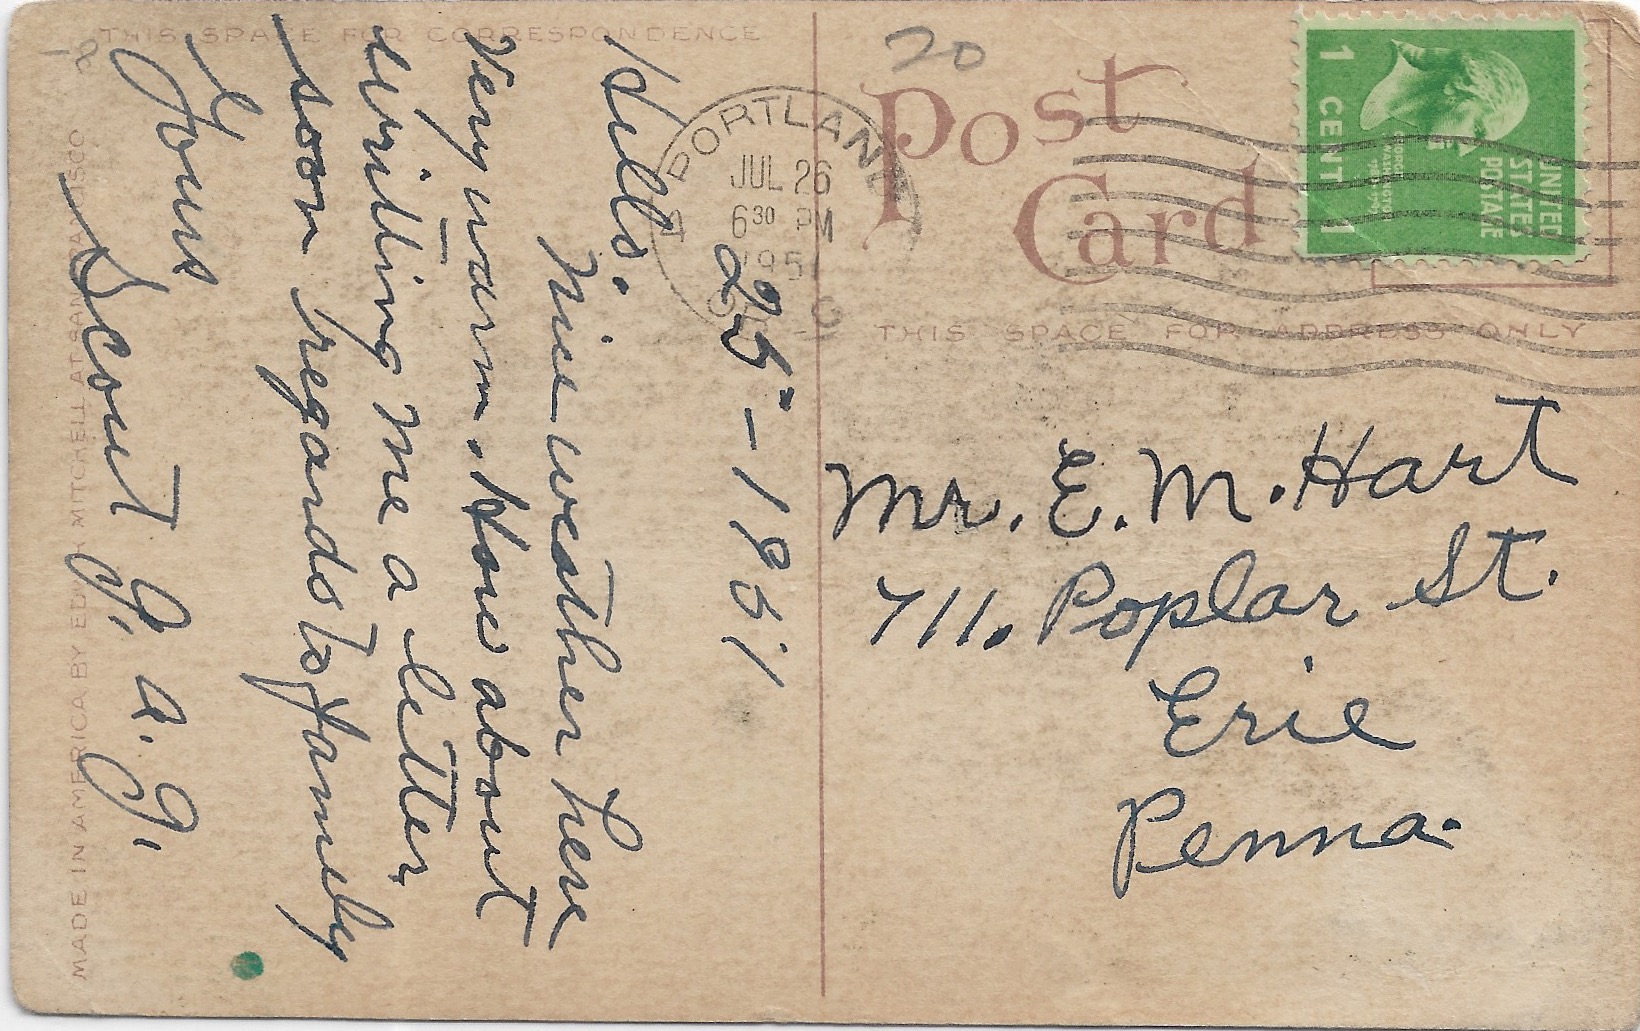 THIS SPACE FOR CORRESPONDENCE
20
Post
Card
THIS SPACE FOR ADDRESS ONLY
UNITED
STATES
POSTAGE
1 CENT 1
PORTLAND
JUL 26
6 30 PM
1951
25 - 1951
Hills.
Nice weather here
Very warm. How about
writting me a letter
soon regards to family
Yours
Scout G. a. G.
Mr. E. M. Hart
711. Poplar St.
Erie
Penna.
MADE IN AMERICA BY EDW. H. MITCHELL AT SAN FRANCISCO